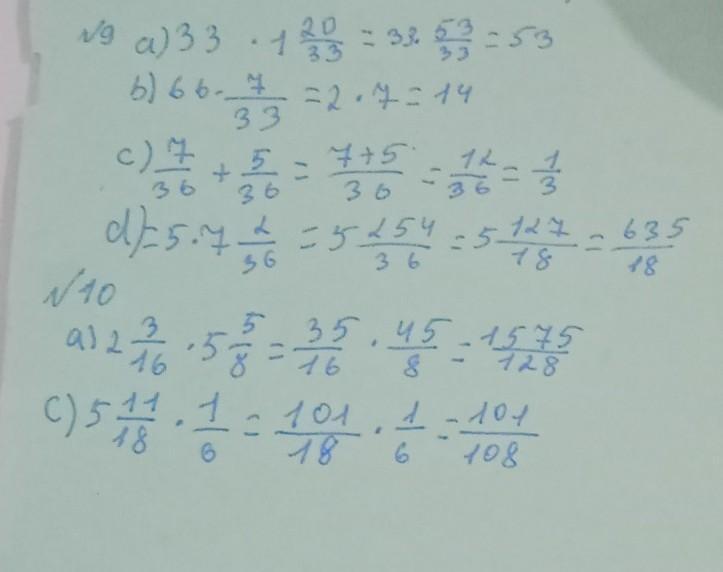 №9 a) 33 · 1 20/33 = 33 · 53/33 = 53
b) 66 · 7/33 = 2 · 7 = 14
c) 7/36 + 5/36 = 7+5/36 = 12/36 = 1/3
d) = 5 · 7 2/36 = 5 254/36 = 5 127/18 = 635/18
№10
a) 2 3/16 · 5 5/8 = 35/16 · 45/8 = 1575/128
c) 5 11/18 · 1/6 = 101/18 · 1/6 = 101/108